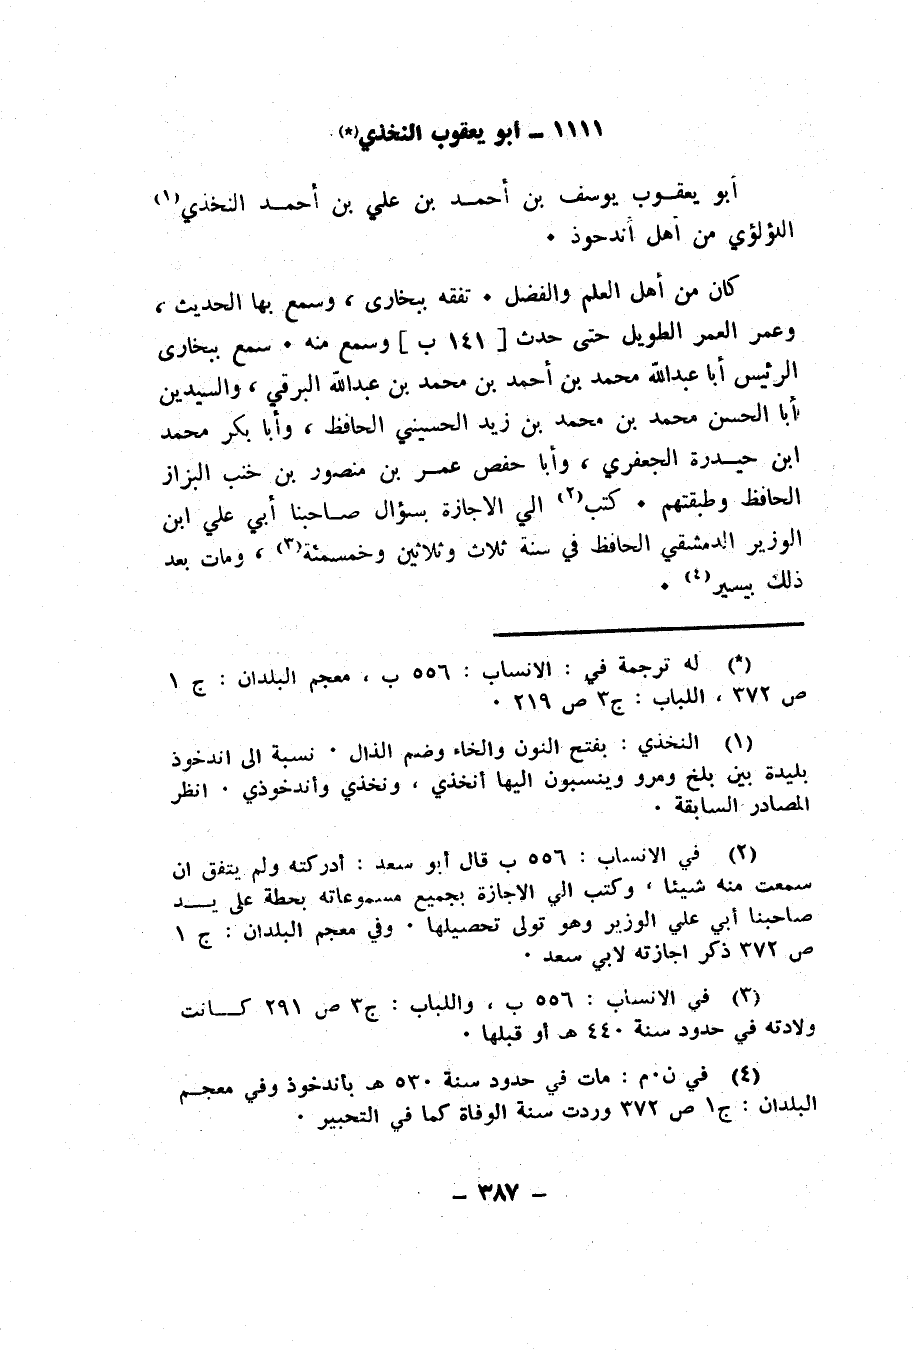 ١١١١ ـ أبو يعقوب النخذي(*)
أبو يعقـوب يوسف بن أحمـد بن علي بن أحمـد النخذي(١)
اللؤلؤي من أهل أندحوذ ٠
كان من أهل العلم والفضل ٠ تفقه ببخارى ، وسمع بها الحديث ،
وعمر العمر الطويل حتى حدث [ ١٤١ ب ] وسمع منه ٠ سمع ببخارى
الرئيس أبا عبدالله محمد بن أحمد بن محمد بن عبدالله البرقي ، والسيدين
أبا الحسن محمد بن محمد بن زيد الحسيني الحافظ ، وأبا بكر محمد
ابن حيـدرة الجعفري ، وأبا حفص عمـر بن منصور بن خنب البزاز
الحافظ وطبقتهم ٠ كتب(٢) الي الاجازة بسؤال صـاحبنا أبي علي ابن
الوزير الدمشقي الحافظ في سنة ثلاث وثلاثين وخمسمئة(٣) ، ومات بعد
ذلك بيسير(٤) ٠
(*) له ترجمة في : الانساب : ٥٥٦ ب ، معجم البلدان : ج ١
ص ٣٧٢ ، اللباب : ج٣ ص ٢١٩ ٠
(١) النخذي : بفتح النون والخاء وضم الذال ٠ نسبة الى اندخوذ
بليدة بين بلخ ومرو وينسبون اليها أنخذي ، ونخذي وأندخوذي ٠ انظر
المصادر السابقة ٠
(٢) في الانساب : ٥٥٦ ب قال أبو سعد : أدركته ولم يتفق ان
سمعت منه شيئا ، وكتب الي الاجازة بجميع مسموعاته بخطة على يـــد
صاحبنا أبي علي الوزير وهو تولى تحصيلها ٠ وفي معجم البلدان : ج ١
ص ٣٧٢ ذكر اجازته لابي سعد ٠
(٣) في الانساب : ٥٥٦ ب ، واللباب : ج٣ ص ٢٩١ كـــانت
ولادته في حدود سنة ٤٤٠ هـ أو قبلها ٠
(٤) في ن٠م : مات في حدود سنة ٥٣٠ هـ بأندخوذ وفي معجـم
البلدان : ج١ ص ٣٧٢ وردت سنة الوفاة كما في التحبير ٠
ـ ٣٨٧ ـ